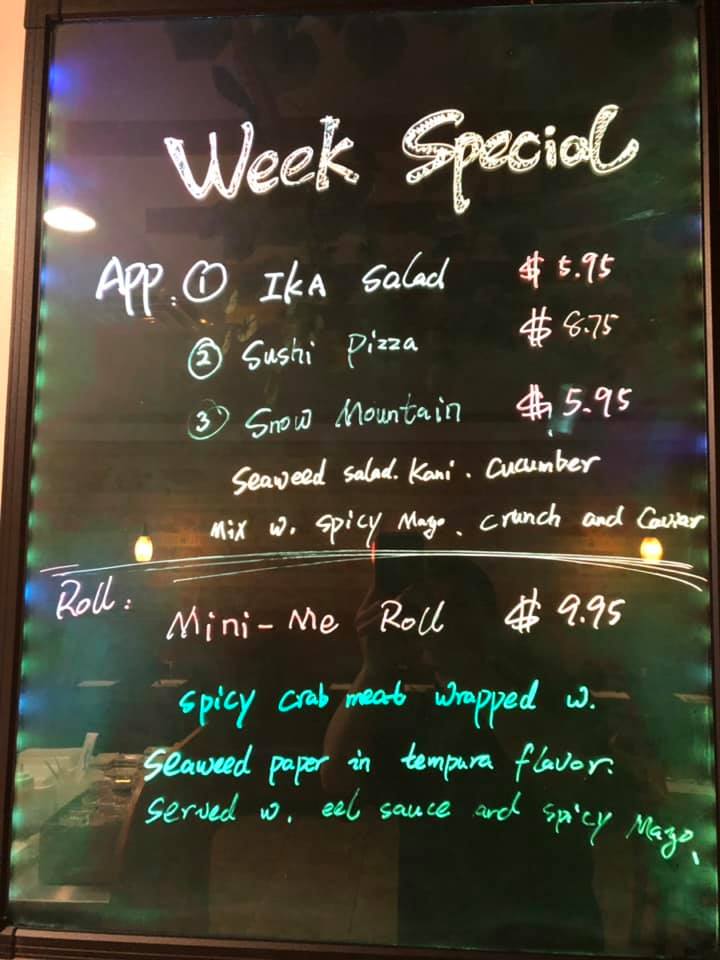 Week Special
APP. ① IKA Salad $ 5.95
② Sushi Pizza $ 8.75
③ Snow Mountain $ 5.95
Seaweed salad. Kani. Cucumber
Mix w. spicy Mayo. crunch and Caviar
Roll: Mini-Me Roll $ 9.95
Spicy crab meat wrapped w.
Seaweed paper in tempura flavor.
Served w. eel sauce and spicy Mayo.